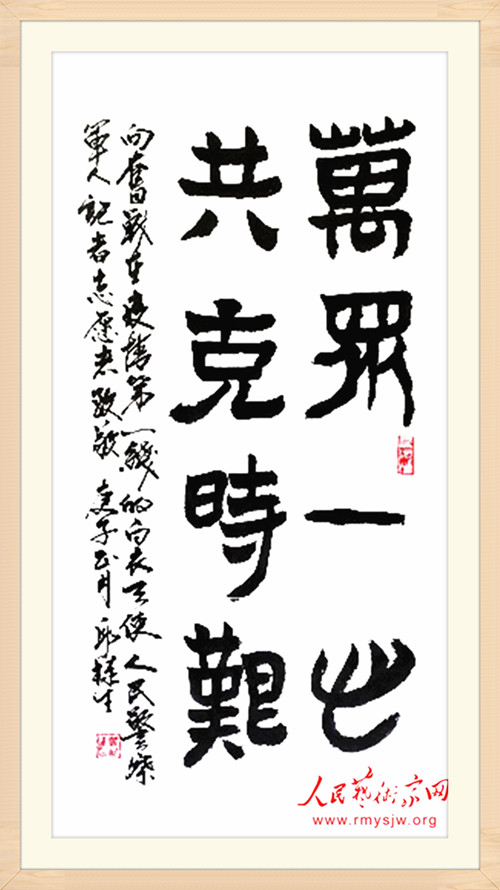 萬眾一心
共克時艱
向奮戰在疫情第一綫的白衣天使人民警察
軍人記者志愿者致敬 庚子正月
人民藝術家网
www.rmysjw.org